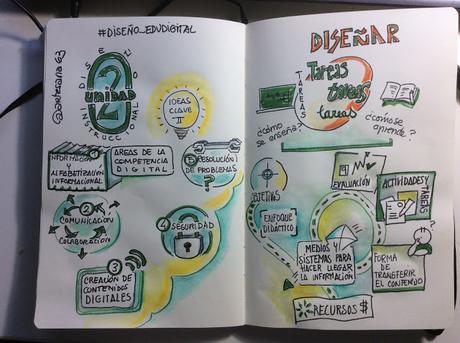 #DISEÑO_EDUDIGITAL
@artesana63
DISEÑO
INSTRUCCIONAL
2
UNIDAD
IDEAS
CLAVE
II
INFORMACIÓN
Y
ALFABETIZACIÓN
INFORMACIONAL
1
ÁREAS DE LA
COMPETENCIA
DIGITAL
5
RESOLUCIÓN
DE PROBLEMAS
?
2
COMUNICACIÓN
Y
COLABORACIÓN
4
SEGURIDAD
3
CREACIÓN DE
CONTENIDOS
DIGITALES
DISEÑAR
TAREAS
Tareas
tareas
tareas
¿cómo
se
enseña?
¿cómo se
aprende?
OBJETIVOS
EVALUACIÓN
ACTIVIDADES Y
TAREAS
ENFOQUE
DIDÁCTICO
MEDIOS Y
SISTEMAS PARA
HACER LLEGAR
LA INFORMACIÓN
FORMA
DE
TRANSFERIR
EL CONTENIDO
RECURSOS $